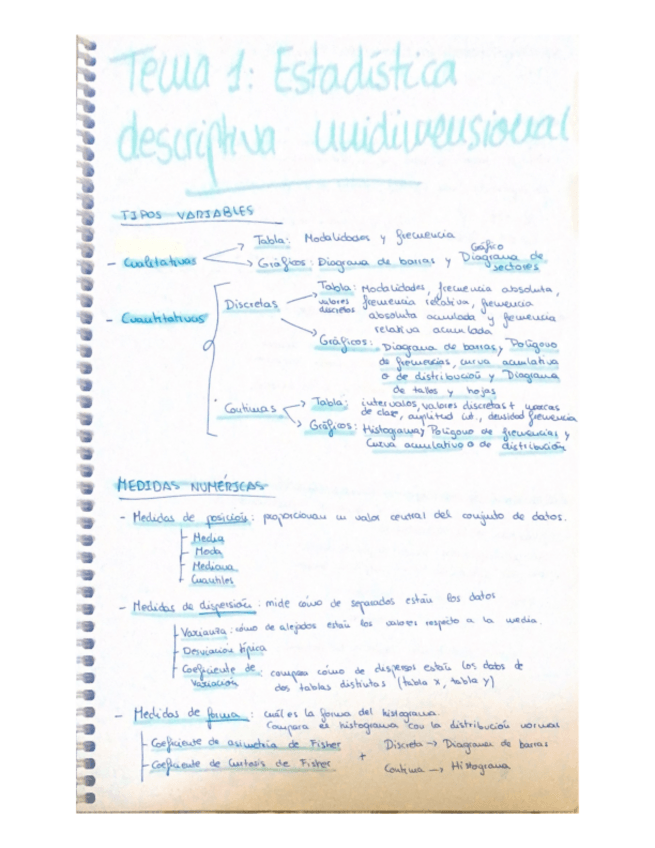 Tema 1: Estadística
descriptiva unidimensional
TIPOS VARIABLES
- Cualitativas
Tabla: Modalidades y frecuencia
Gráficos: Diagrama de barras y Gráfico Diagrama de sectores
- Cuantitativas
Discretas
Tabla: Modalidades, frecuencia absoluta,
valores discretos
frecuencia relativa, frecuencia
absoluta acumulada y frecuencia
relativa acumulada
Gráficos: Diagrama de barras, Polígono
de frecuencias, curva acumulativa
o de distribución y Diagrama
de tallos y hojas
Continuas
Tabla: intervalos, valores discretas + marcas
de clase, amplitud int., densidad frecuencia
Gráficos: Histograma, Polígono de frecuencias y
Curva acumulativa o de distribución
MEDIDAS NUMÉRICAS
- Medidas de posición: proporcionan un valor central del conjunto de datos.
Media
Moda
Mediana
Cuantiles
- Medidas de dispersión: mide cómo de separados están los datos
Varianza: cómo de alejados están los valores respecto a la media.
Desviación típica
Coeficiente de variación: compara cómo de dispersos están los datos de
dos tablas distintas (tabla x, tabla y)
- Medidas de forma: cuál es la forma del histograma.
Compara el histograma con la distribución normal
Coeficiente de asimetría de Fisher
Coeficiente de Curtosis de Fisher
+
Discreta → Diagrama de barras
Continua → Histograma